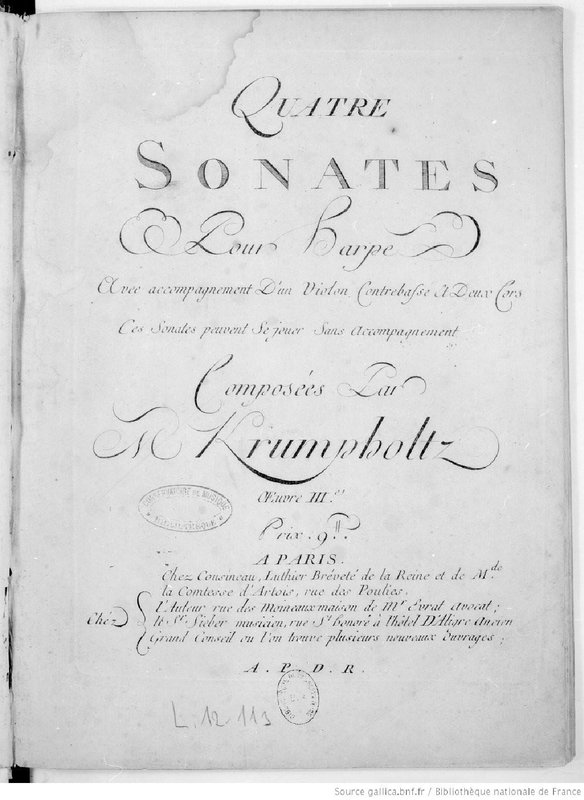 QUATRE
SONATES
Pour Harpe
Avec accompagnement D'un Violon Contrebasse et Deux Cors
Ces Sonates peuvent Se jouer Sans Accompagnement
Composées Par
Mr Krumpholtz
Œuvre III.e
Prix. 9tt.
A PARIS.
Chez Cousineau, Luthier Brévété de la Reine et de M.de
la Comtesse d'Artois, rue des Poulies.
Chéz
l'Auteur rue des Moineaux maison de Mr. Evrat Avocat;
le Sr. Sieber musicien, rue St honoré à l'hôtel D'Aligre Ancien
Grand Conseil ou l'on trouve plusieurs nouveaux Ouvrages;
A. P. D. R.
CONSERVATOIRE DE MUSIQUE
BIBLIOTHEQUE
L. 12 113
Source gallica.bnf.fr / Bibliothèque nationale de France